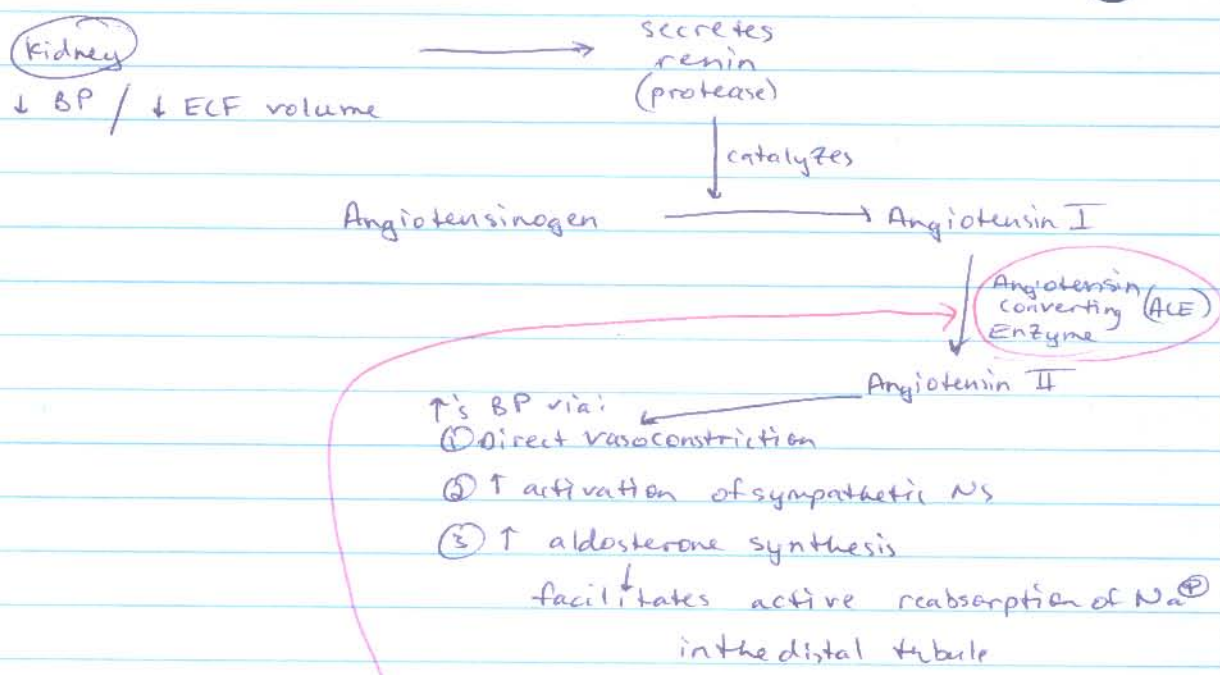 Kidney
↓ BP / ↓ ECF volume
secretes
renin
(protease)
catalyzes
Angiotensinogen
Angiotensin I
Angiotensin
Converting (ACE)
Enzyme
Angiotensin II
↑'s BP via:
① Direct vasoconstriction
② ↑ activation of sympathetic NS
③ ↑ aldosterone synthesis
facilitates active reabsorption of Na⊕
in the distal tubule